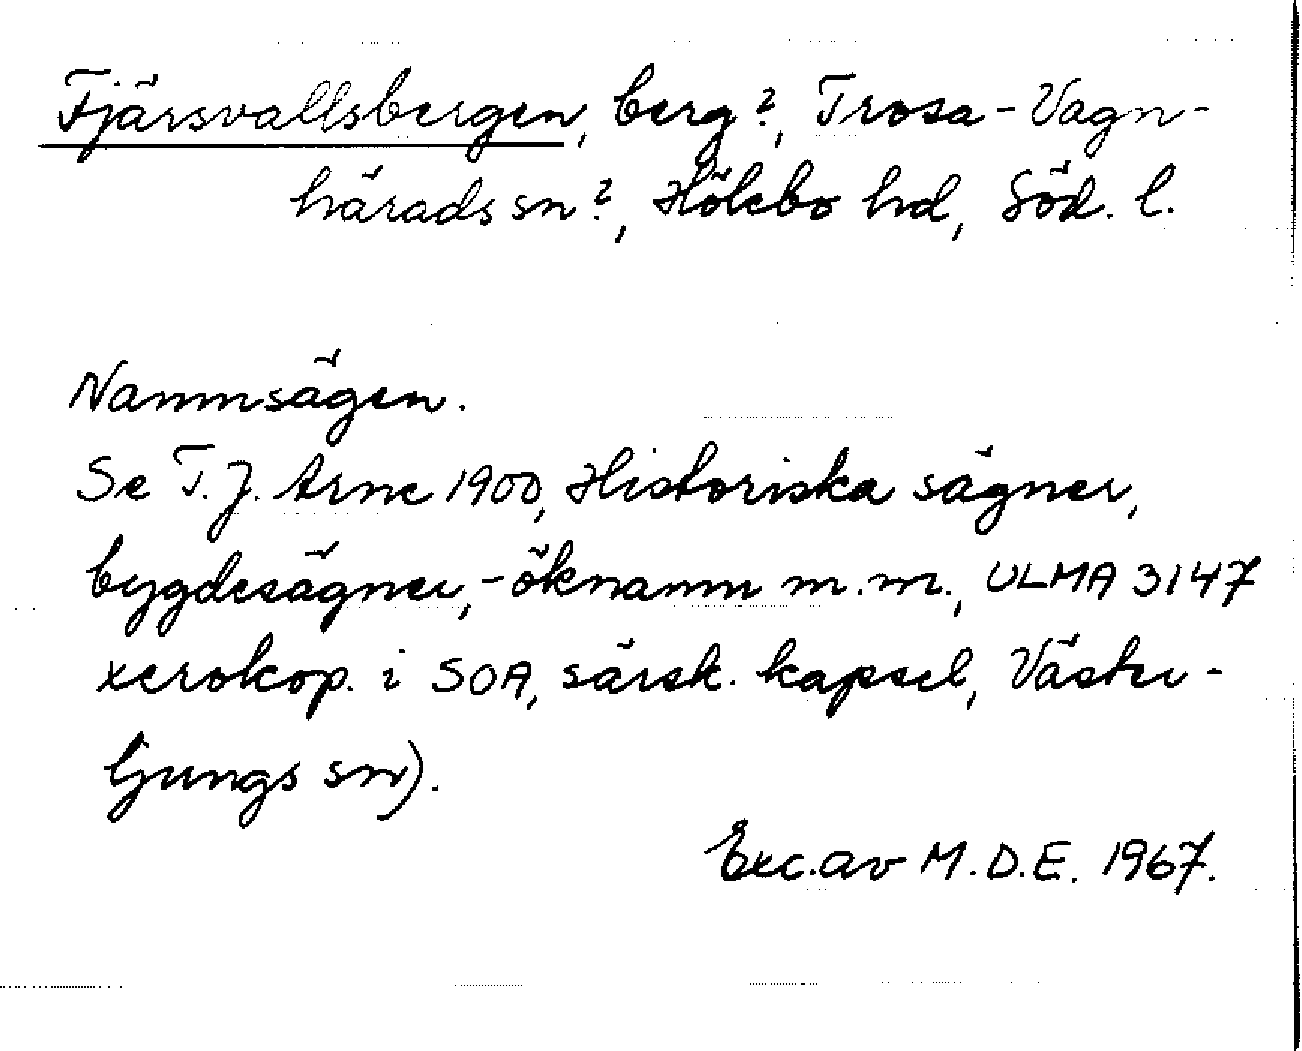 Fjärsvallsbergen, berg?, Trosa-Vagn-
härads sn?, Hölebo hd, Söd. l.
Namnsägen.
Se T.J. Arne 1900, Historiska sägner,
bygdesägner, -öknamn m.m., ULMA 3147
xerokop. i SOA, särsk. kapsel, Väster-
ljungs sn).
Exc. av M.D.E. 1967.